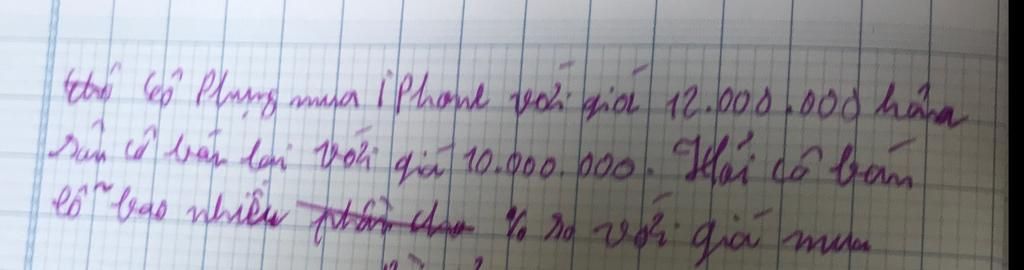 cô Phụng mua iPhone với giá 12.000.000 hôm
sau cô bán lại với giá 10.000.000. Hỏi cô bán
lỗ bao nhiêu % so với giá mua